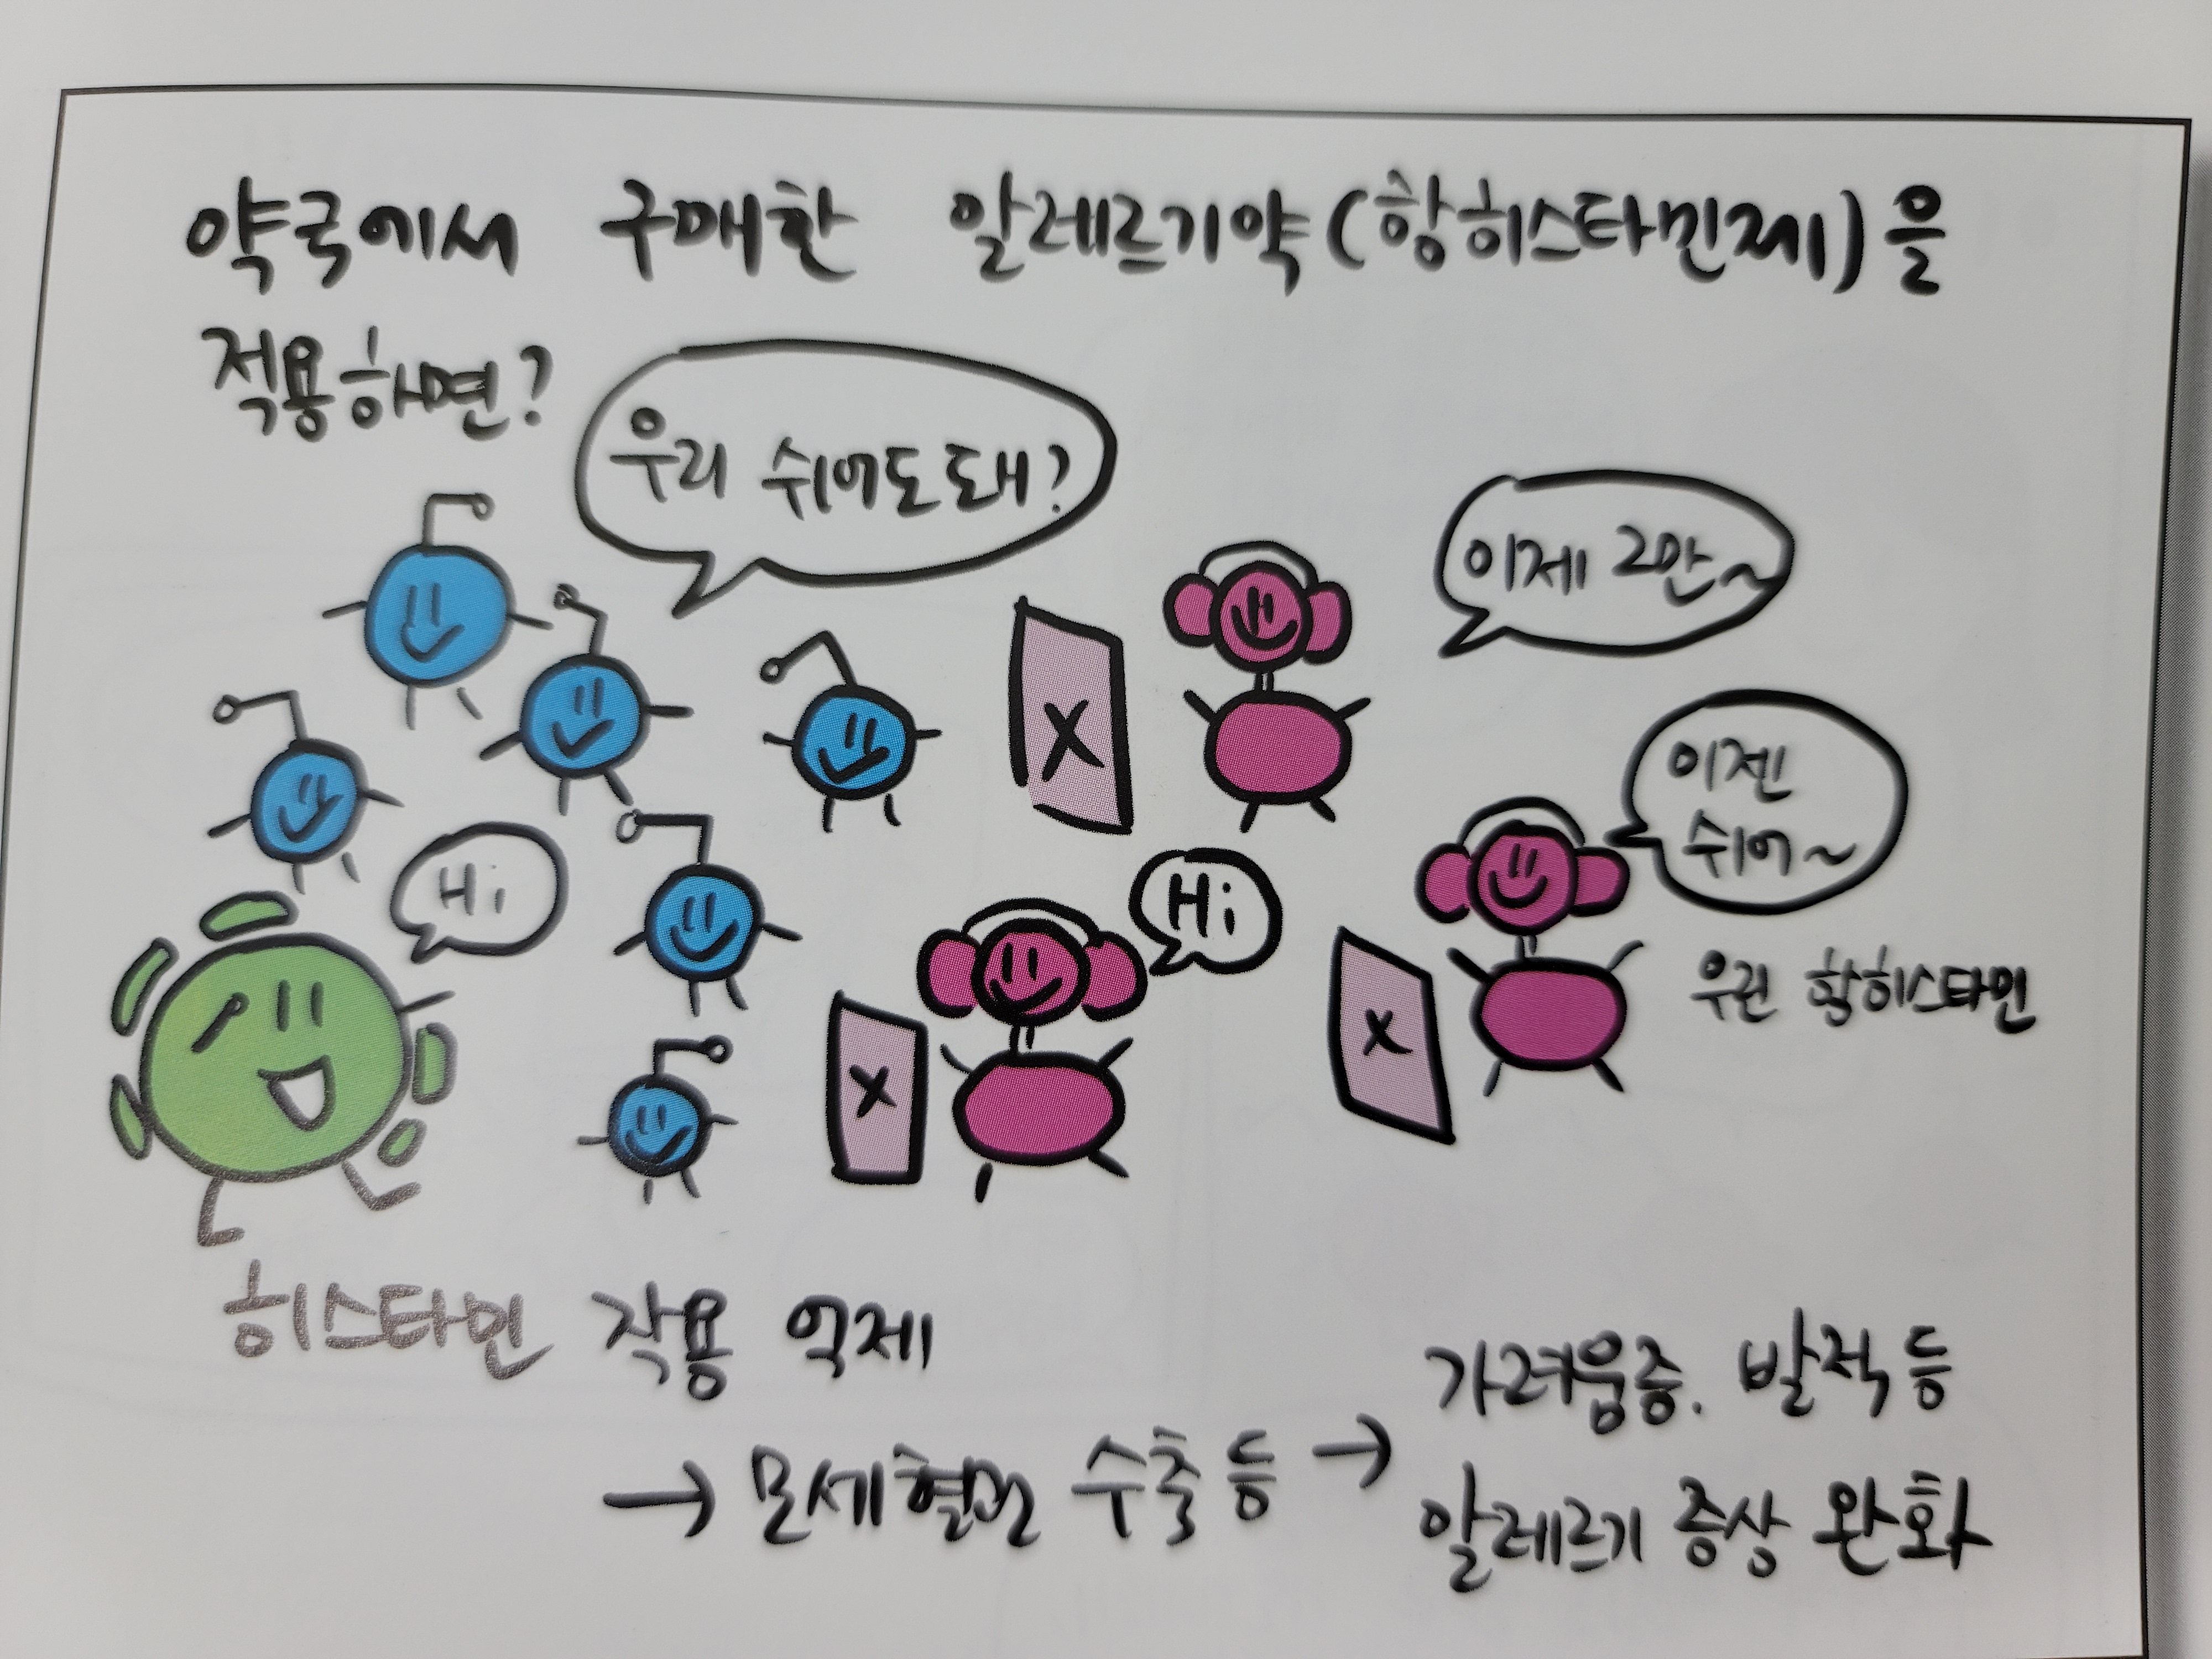 약국에서 구매한 알레르기약(항히스타민제)을
적용하면?
우리 쉬어도 돼?
이제 그만~
이젠
쉬어~
Hi
Hi
X
X
X
우린 항히스타민
히스타민 작용 억제
→ 모세혈관 수축 등 →
가려움증. 발적 등
알레르기 증상 완화